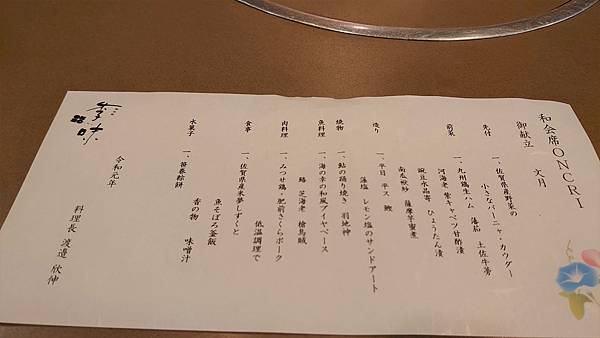 和会席ONCRI
御献立　文月
先付
一、佐賀県産野菜の
小さなバーニャ・カウダー
前菜
一、九州鶏生ハム　藩茄　土佐牛蒡
河海老　紫キャベツ甘酢漬
豌豆水晶寄　ひょうたん漬
南瓜　薩摩芋蜜煮
造り
一、平目　平ス　鮍
藻塩　レモン塩のサンドアート
焼物
一、鮎の踊り焼き　羽地神
魚料理
一、海の幸の和風ブイヤベース
鱚　芝海老　槍烏賊
肉料理
一、みつせ鶏・肥前さくらポーク
低温調理で
食事
一、佐賀県産米夢しずくと
魚そぼろ釜飯
香の物　味噌汁
水菓子
一、葛春粽餅
令和元年
料理長　渡邉　欣伸